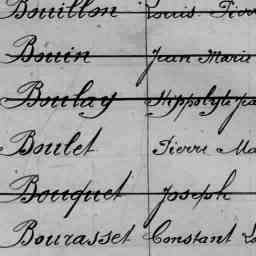 Bouillon Louis Pierr
Bouin Jean Marie
Boulay Hippolyte
Boulet Pierre Ma
Bouquet Joseph
Bourasset Constant